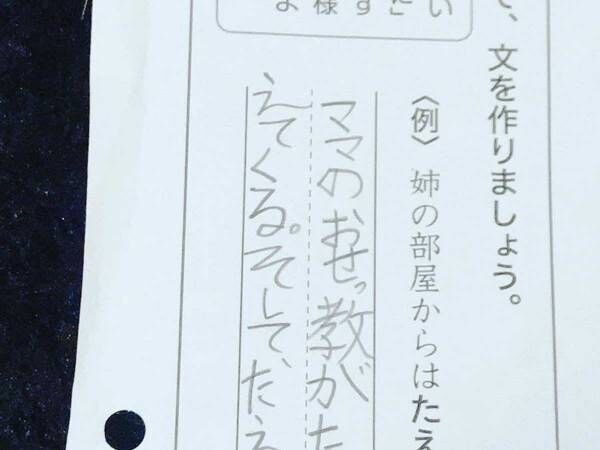 、文を作りましょう。
い
す
様
よ
〈例〉 姉の部屋からはたえ
ママのおせっ教がた
えてくる。そして、たえ